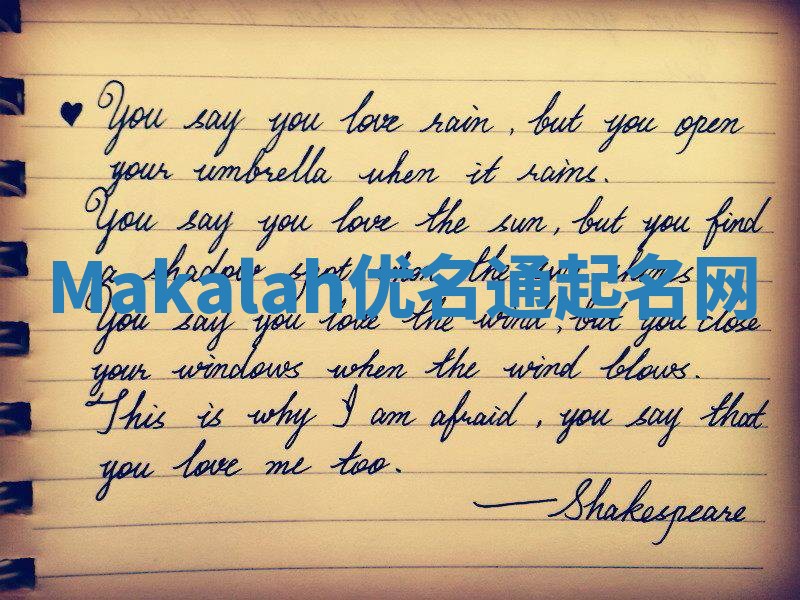 ♥ You say you love rain, but you open
your umbrella when it rains.
You say you love the sun, but you find
a shadow spot when the sun shines
Makalah优名通起名网
You say you love the wind, but you close
your windows when the wind blows.
This is why I am afraid, you say that
you love me too.
—Shakespeare